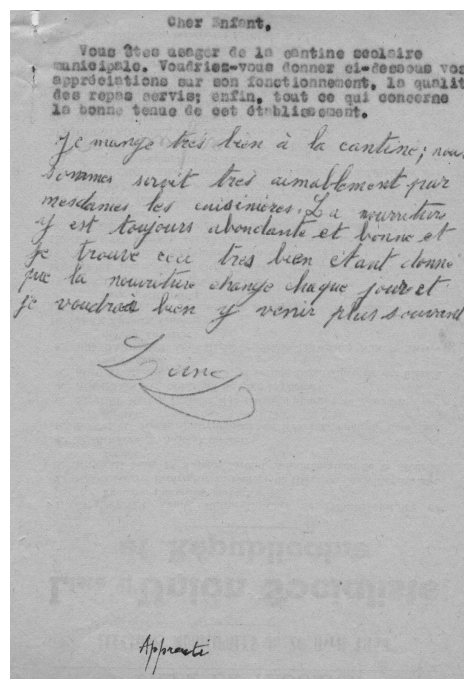 Cher Enfant,
Vous êtes usager de la cantine scolaire
municipale. Voudriez-vous donner ci-dessous vos
appréciations sur son fonctionnement, la qualit
des repas servis; enfin, tout ce qui concerne
la bonne tenue de cet établissement.
Je mange très bien à la cantine; nou
sommes servit très aimablement par
mesdames les cuisinières. La nourriture
y est toujours abondante et bonne et
je trouve ceci très bien étant donné
que la nourriture change chaque jour et
je voudrais bien y venir plus souvent
et Républicaine
Liste d'Union Socialiste